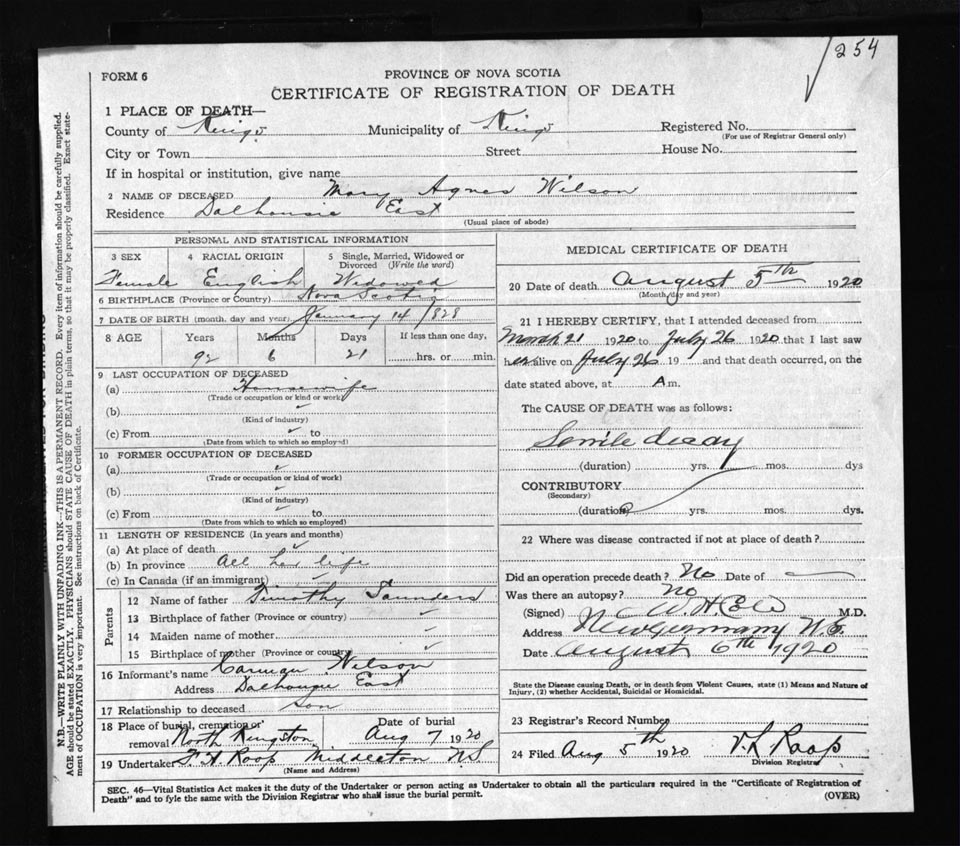 254
FORM 6
PROVINCE OF NOVA SCOTIA
CERTIFICATE OF REGISTRATION OF DEATH
1 PLACE OF DEATH—
County of Kings Municipality of Kings Registered No.
(For use of Registrar General only)
City or Town Street House No.
If in hospital or institution, give name
2 NAME OF DECEASED Mary Agnes Wilson
Residence Dalhousie East
(Usual place of abode)
PERSONAL AND STATISTICAL INFORMATION
3 SEX 4 RACIAL ORIGIN 5 Single, Married, Widowed or
Divorced (Write the word)
Female English Widowed
6 BIRTHPLACE (Province or Country) Nova Scotia
7 DATE OF BIRTH (month, day and year) January 14 1828
8 AGE Years Months Days If less than one day,
92 6 21 hrs. or min.
9 LAST OCCUPATION OF DECEASED
(a) Housewife
(Trade or occupation or kind or work)
(b)
(Kind of industry)
(c) From to
(Date from which to which so employed)
10 FORMER OCCUPATION OF DECEASED
(a)
(Trade or occupation or kind of work)
(b)
(Kind of industry)
(c) From to
(Date from which to which so employed)
11 LENGTH OF RESIDENCE (In years and months)
(a) At place of death
(b) In province All her life
(c) In Canada (if an immigrant)
Parents
12 Name of father Timothy Saunders
13 Birthplace of father (Province or country)
14 Maiden name of mother
15 Birthplace of mother (Province or country)
16 Informant's name Carman Wilson
Address Dalhousie East
17 Relationship to deceased son
18 Place of burial, cremation or Date of burial
removal North Kingston Aug 7 1920
19 Undertaker F. H. Roop Middleton N.S.
(Name and Address)
MEDICAL CERTIFICATE OF DEATH
20 Date of death August 5th 1920
(Month, day and year)
21 I HEREBY CERTIFY, that I attended deceased from
March 21 1920 to July 26 1920 that I last saw
her alive on July 26 19 and that death occurred, on the
date stated above, at A m.
The CAUSE OF DEATH was as follows:
Senile decay
(duration) yrs. mos. dys
CONTRIBUTORY
(Secondary)
(duration) yrs. mos. dys.
22 Where was disease contracted if not at place of death?
Did an operation precede death? No Date of —
Was there an autopsy? No
(Signed) W. H. Cole M.D.
Address New Germany N.S.
Date August 6th 1920
State the Disease causing Death, or in death from Violent Causes, state (1) Means and Nature of
Injury, (2) whether Accidental, Suicidal or Homicidal.
23 Registrar's Record Number
24 Filed Aug 5th 1920 V. L Roop
Division Registrar
SEC. 46—Vital Statistics Act makes it the duty of the Undertaker or person acting as Undertaker to obtain all the particulars required in the "Certificate of Registration of
Death" and to fyle the same with the Division Registrar who shall issue the burial permit.
(OVER)
N.B.—WRITE PLAINLY WITH UNFADING INK—THIS IS A PERMANENT RECORD. Every item of information should be carefully supplied.
AGE should be stated EXACTLY. PHYSICIANS should STATE CAUSE OF DEATH in plain terms, so that it may be properly classified. Exact state-
ment of OCCUPATION is very important. See instructions on back of Certificate.